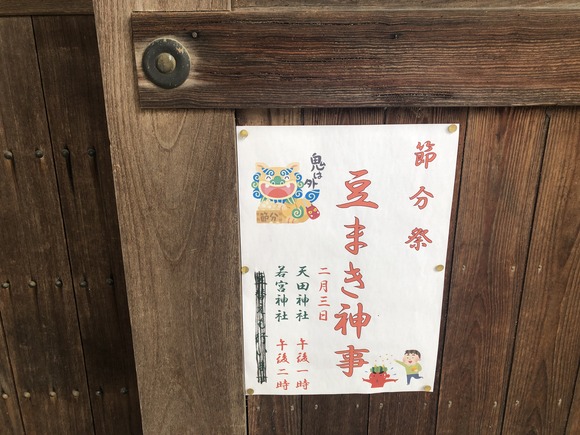 節分祭
豆まき神事
二月三日
天田神社 午後一時
若宮神社 午後二時
鬼は外
節分